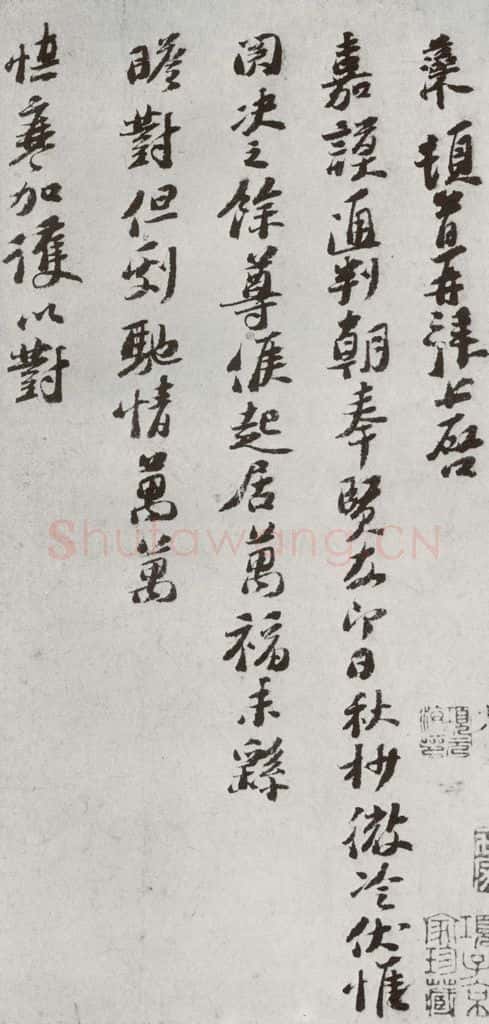 頓首再拜上啓
嘉謨通判朝奉賢友即日秋杪微冷伏惟
関决之餘尊候起居萬福未繇
瞻對但劇馳情萬萬
慎寒加護以對
ShufaWang.CN
項子京家珍藏